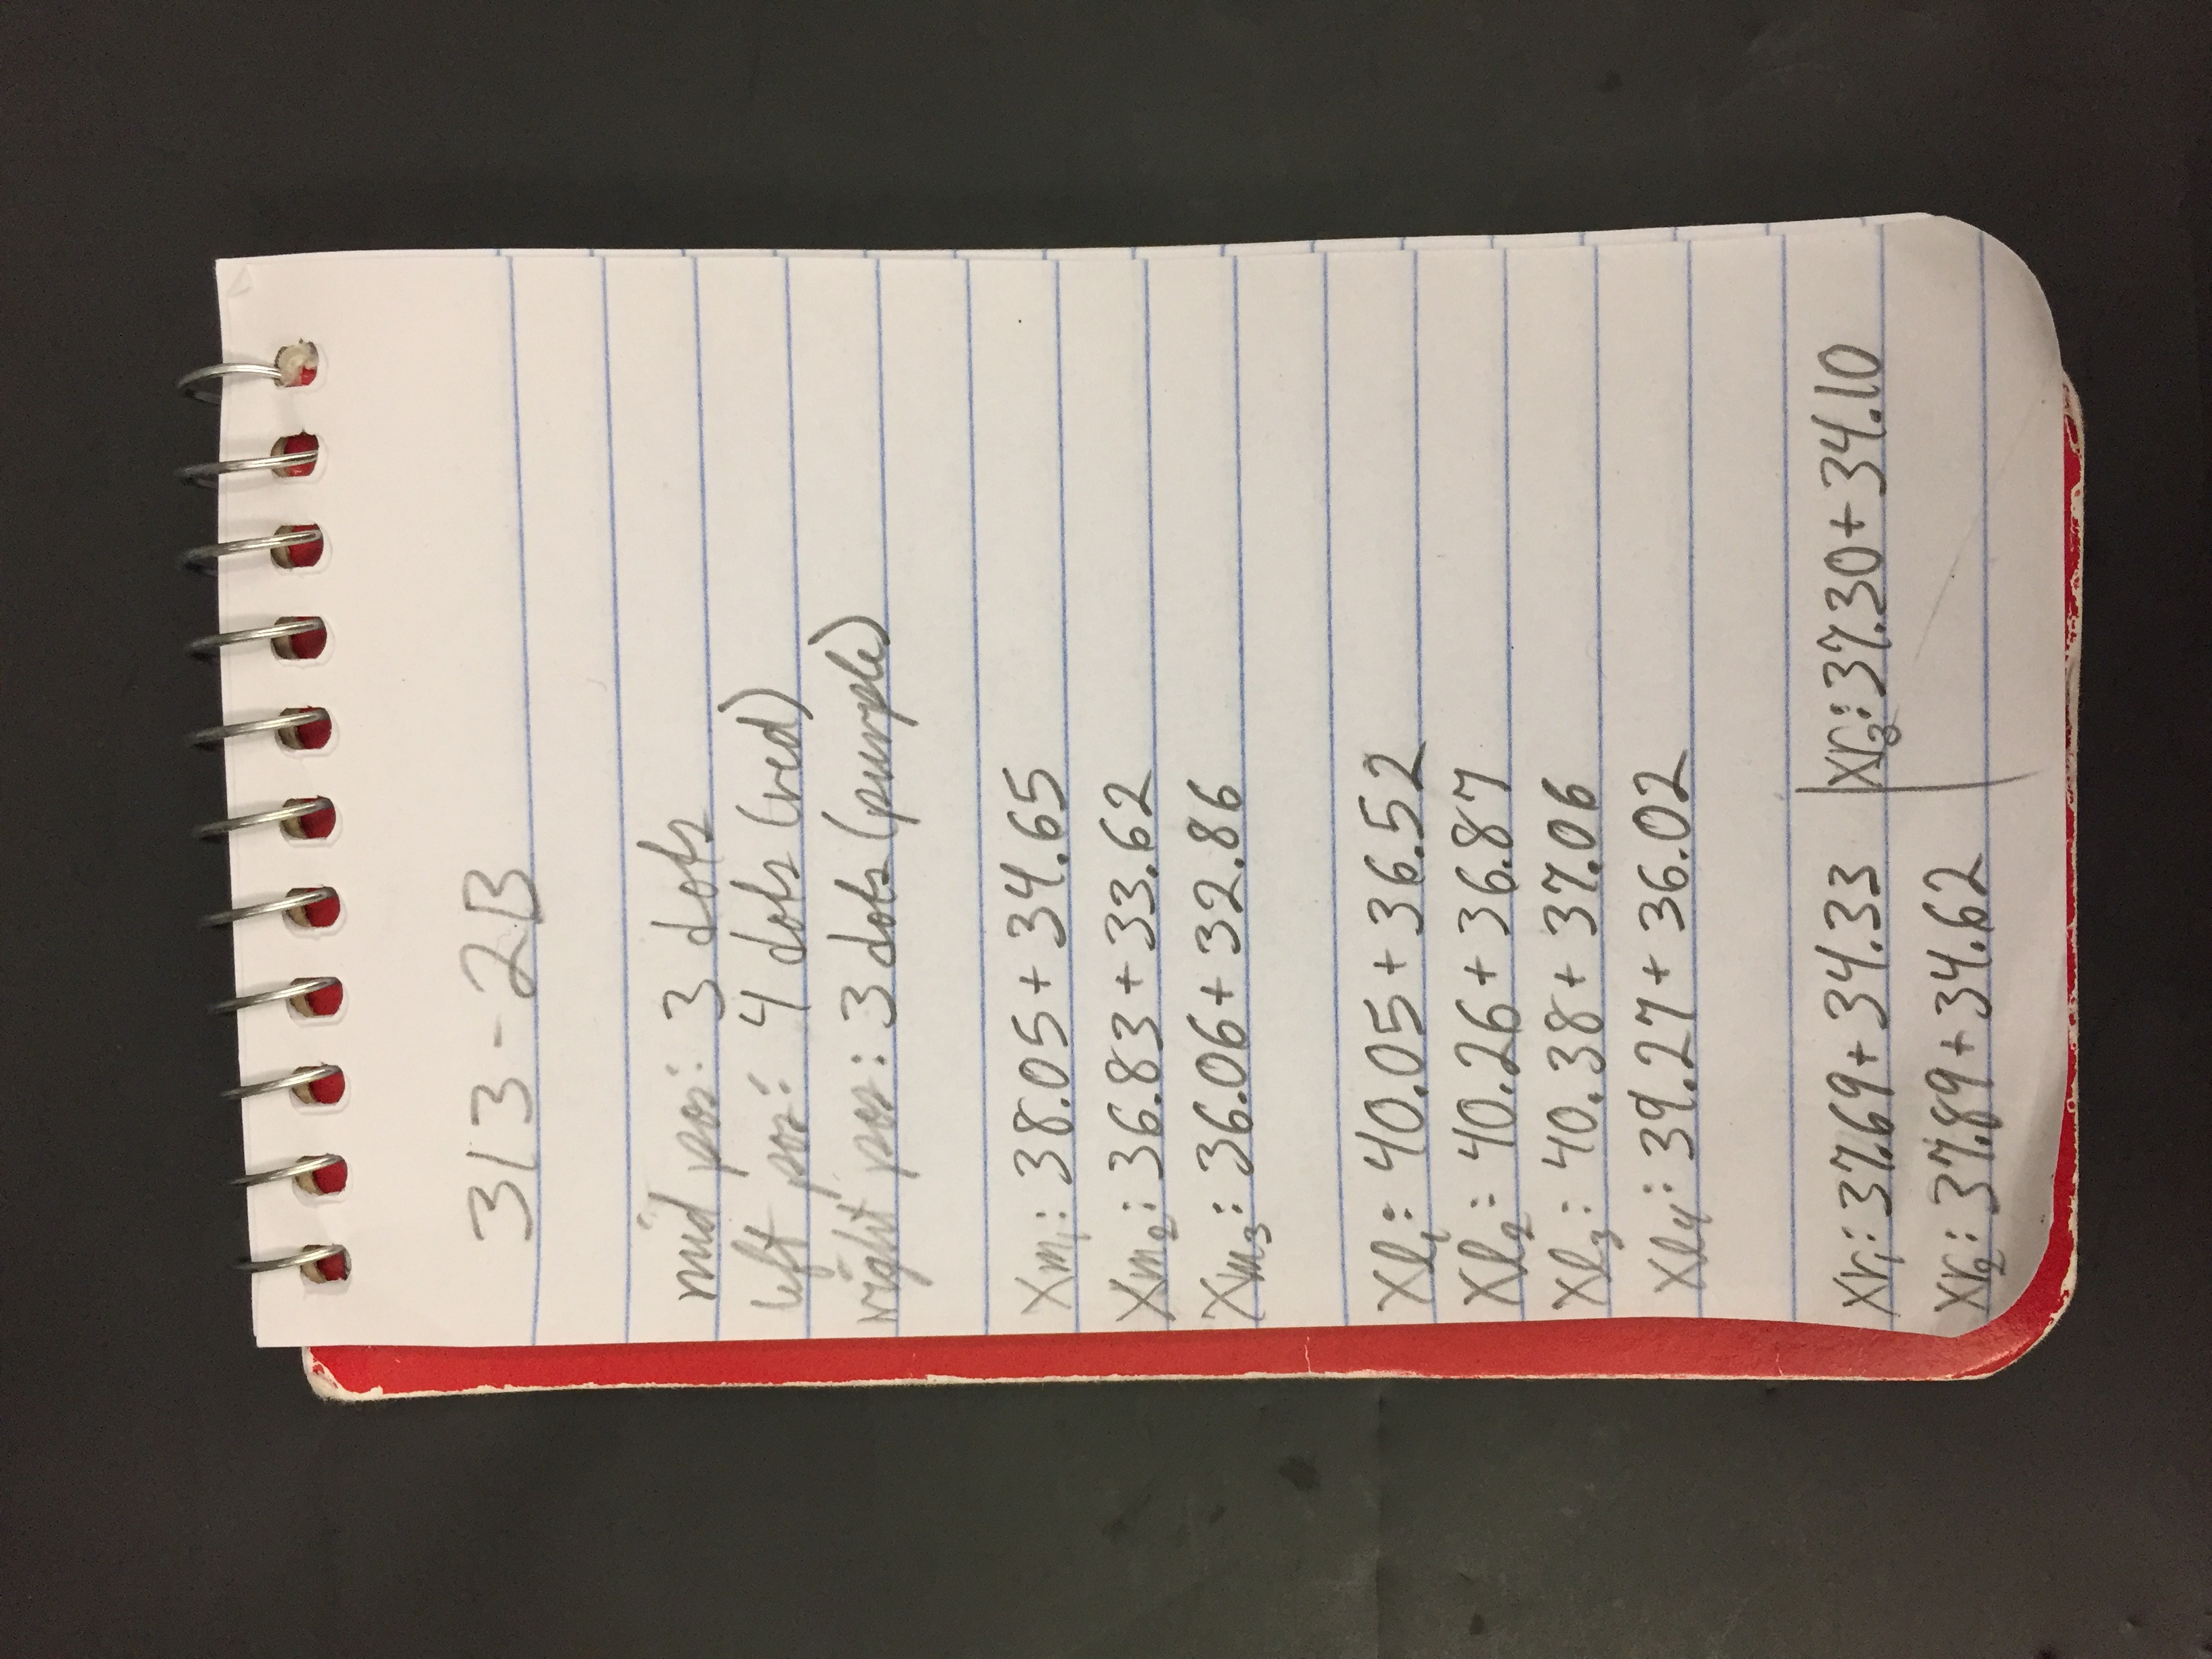 313-2B
mid pos: 3 dots
left pos: 4 dots (red)
right pos: 3 dots (purple)
Xm₁: 38.05 + 34.65
Xm₂: 36.83 + 33.62
Xm₃: 36.06 + 32.86
Xl₁: 40.05 + 36.52
Xl₂: 40.26 + 36.87
Xl₃: 40.38 + 37.06
Xl₄: 39.27 + 36.02
Xr₁: 37.69 + 34.33
Xr₂: 37.89 + 34.62
Xr₃: 37.30 + 34.10